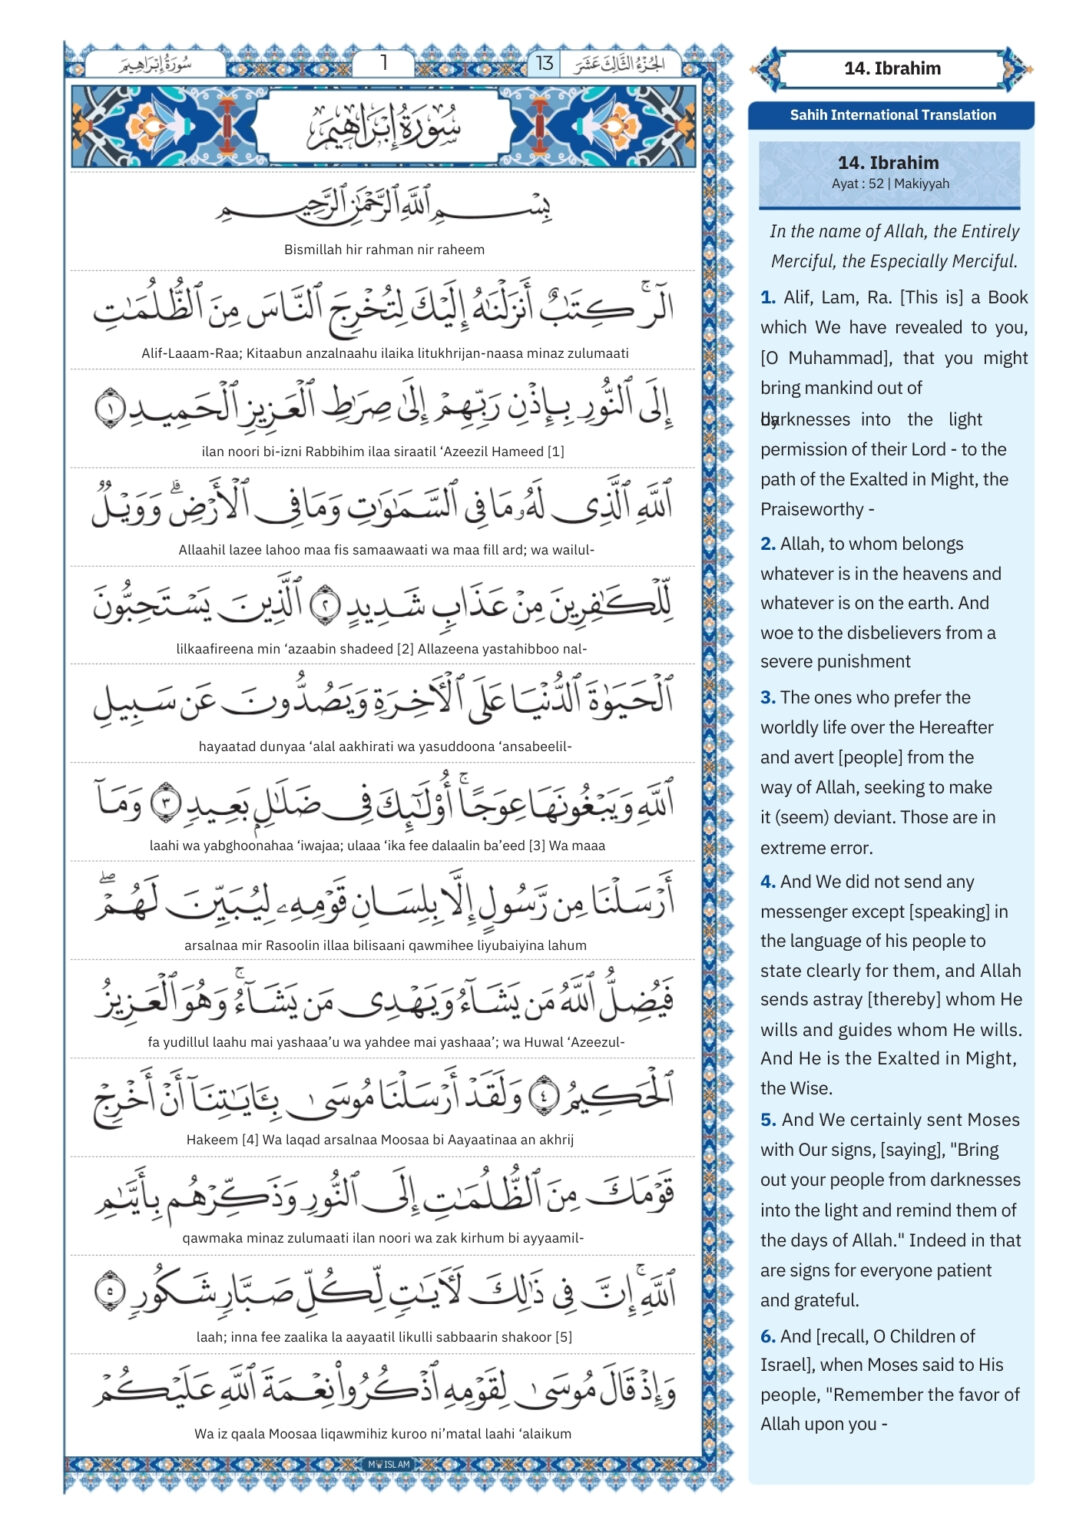 سُورَةُ إِبْرَاهِيم
1
13
الجُزْءُ الثَّالِثَ عَشَرَ
سُورَةُ إِبْرَاهِيم
بِسْمِ ٱللَّهِ ٱلرَّحْمَٰنِ ٱلرَّحِيمِ
Bismillah hir rahman nir raheem
الٓرۚ كِتَٰبٌ أَنزَلْنَٰهُ إِلَيْكَ لِتُخْرِجَ ٱلنَّاسَ مِنَ ٱلظُّلُمَٰتِ
Alif-Laaam-Raa; Kitaabun anzalnaahu ilaika litukhrijan-naasa minaz zulumaati
إِلَى ٱلنُّورِ بِإِذْنِ رَبِّهِمْ إِلَىٰ صِرَٰطِ ٱلْعَزِيزِ ٱلْحَمِيدِ ١
ilan noori bi-izni Rabbihim ilaa siraatil ‘Azeezil Hameed [1]
ٱللَّهِ ٱلَّذِى لَهُۥ مَا فِى ٱلسَّمَٰوَٰتِ وَمَا فِى ٱلْأَرْضِۗ وَوَيْلٌ
Allaahil lazee lahoo maa fis samaawaati wa maa fill ard; wa wailul-
لِّلْكَٰفِرِينَ مِنْ عَذَابٍ شَدِيدٍ ٢ ٱلَّذِينَ يَسْتَحِبُّونَ
lilkaafireena min ‘azaabin shadeed [2] Allazeena yastahibboo nal-
ٱلْحَيَوٰةَ ٱلدُّنْيَا عَلَى ٱلْأَخِرَةِ وَيَصُدُّونَ عَن سَبِيلِ
hayaatad dunyaa ‘alal aakhirati wa yasuddoona ‘ansabeelil-
ٱللَّهِ وَيَبْغُونَهَا عِوَجًاۚ أُو۟لَٰٓئِكَ فِى ضَلَٰلٍۭ بَعِيدٍ ٣ وَمَآ
laahi wa yabghoonahaa ‘iwajaa; ulaaa ‘ika fee dalaalin ba’eed [3] Wa maaa
أَرْسَلْنَا مِن رَّسُولٍ إِلَّا بِلِسَانِ قَوْمِهِۦ لِيُبَيِّنَ لَهُمْۖ
arsalnaa mir Rasoolin illaa bilisaani qawmihee liyubaiyina lahum
فَيُضِلُّ ٱللَّهُ مَن يَشَآءُ وَيَهْدِى مَن يَشَآءُۚ وَهُوَ ٱلْعَزِيزُ
fa yudillul laahu mai yashaaa’u wa yahdee mai yashaaa’; wa Huwal ‘Azeezul-
ٱلْحَكِيمُ ٤ وَلَقَدْ أَرْسَلْنَا مُوسَىٰ بِـَٔايَٰتِنَآ أَنْ أَخْرِجْ
Hakeem [4] Wa laqad arsalnaa Moosaa bi Aayaatinaa an akhrij
قَوْمَكَ مِنَ ٱلظُّلُمَٰتِ إِلَى ٱلنُّورِ وَذَكِّرْهُم بِأَيَّىٰمِ
qawmaka minaz zulumaati ilan noori wa zak kirhum bi ayyaamil-
ٱللَّهِۚ إِنَّ فِى ذَٰلِكَ لَأَيَٰتٍ لِّكُلِّ صَبَّارٍ شَكُورٍ ٥
laah; inna fee zaalika la aayaatil likulli sabbaarin shakoor [5]
وَإِذْ قَالَ مُوسَىٰ لِقَوْمِهِ ٱذْكُرُوا۟ نِعْمَةَ ٱللَّهِ عَلَيْكُمْ
Wa iz qaala Moosaa liqawmihiz kuroo ni’matal laahi ‘alaikum
M ISLAM
14. Ibrahim
Sahih International Translation
14. Ibrahim
Ayat : 52 | Makiyyah
In the name of Allah, the Entirely
Merciful, the Especially Merciful.
1. Alif, Lam, Ra. [This is] a Book
which We have revealed to you,
[O Muhammad], that you might
bring mankind out of
by
darknesses into the light
permission of their Lord - to the
path of the Exalted in Might, the
Praiseworthy -
2. Allah, to whom belongs
whatever is in the heavens and
whatever is on the earth. And
woe to the disbelievers from a
severe punishment
3. The ones who prefer the
worldly life over the Hereafter
and avert [people] from the
way of Allah, seeking to make
it (seem) deviant. Those are in
extreme error.
4. And We did not send any
messenger except [speaking] in
the language of his people to
state clearly for them, and Allah
sends astray [thereby] whom He
wills and guides whom He wills.
And He is the Exalted in Might,
the Wise.
5. And We certainly sent Moses
with Our signs, [saying], "Bring
out your people from darknesses
into the light and remind them of
the days of Allah." Indeed in that
are signs for everyone patient
and grateful.
6. And [recall, O Children of
Israel], when Moses said to His
people, "Remember the favor of
Allah upon you -